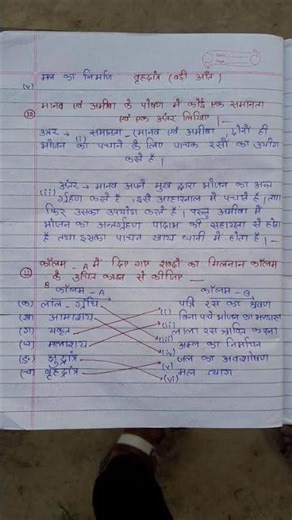 (v) मल का निर्माण बृहदांत्र (बड़ी आँत)
(10) मानव एवं अमीबा के पोषण में कोई एक समानता
एवं एक अंतर लिखिए |
उत्तर → (i) समानता - (मानव एवं अमीबा, दोनों ही
भोजन को पचाने के लिए पाचक रसों का उपयोग
करते हैं |
(ii) अंतर - मानव अपने मुख द्वारा भोजन का अन्त
ग्रहण करते हैं, इसे आहारनाल में पचाते हैं | तथा
फिर उसका उपयोग करते हैं | परन्तु अमीबा में
भोजन का अन्तर्ग्रहण पादाभ की सहायता से होता
है तथा इसका पाचन खाद्य धानी में होता है |
(11) कॉलम - A में दिए गए शब्दों का मिलान कॉलम
B के उचित कथन से कीजिए
कॉलम - A कॉलम - B
(क) लाला-ग्रंथि (i) पित्त रस का स्रवण
(ख) आमाशय (ii) बिना पचे भोजन का भण्डारण
(ग) यकृत (iii) लाला रस स्रावित करना
(घ) मलाशय (iv) अम्ल का निर्मोचन
(ङ) क्षुद्रांत्र (v) जल का अवशोषण
(च) बृहदांत्र (vi) मल त्याग